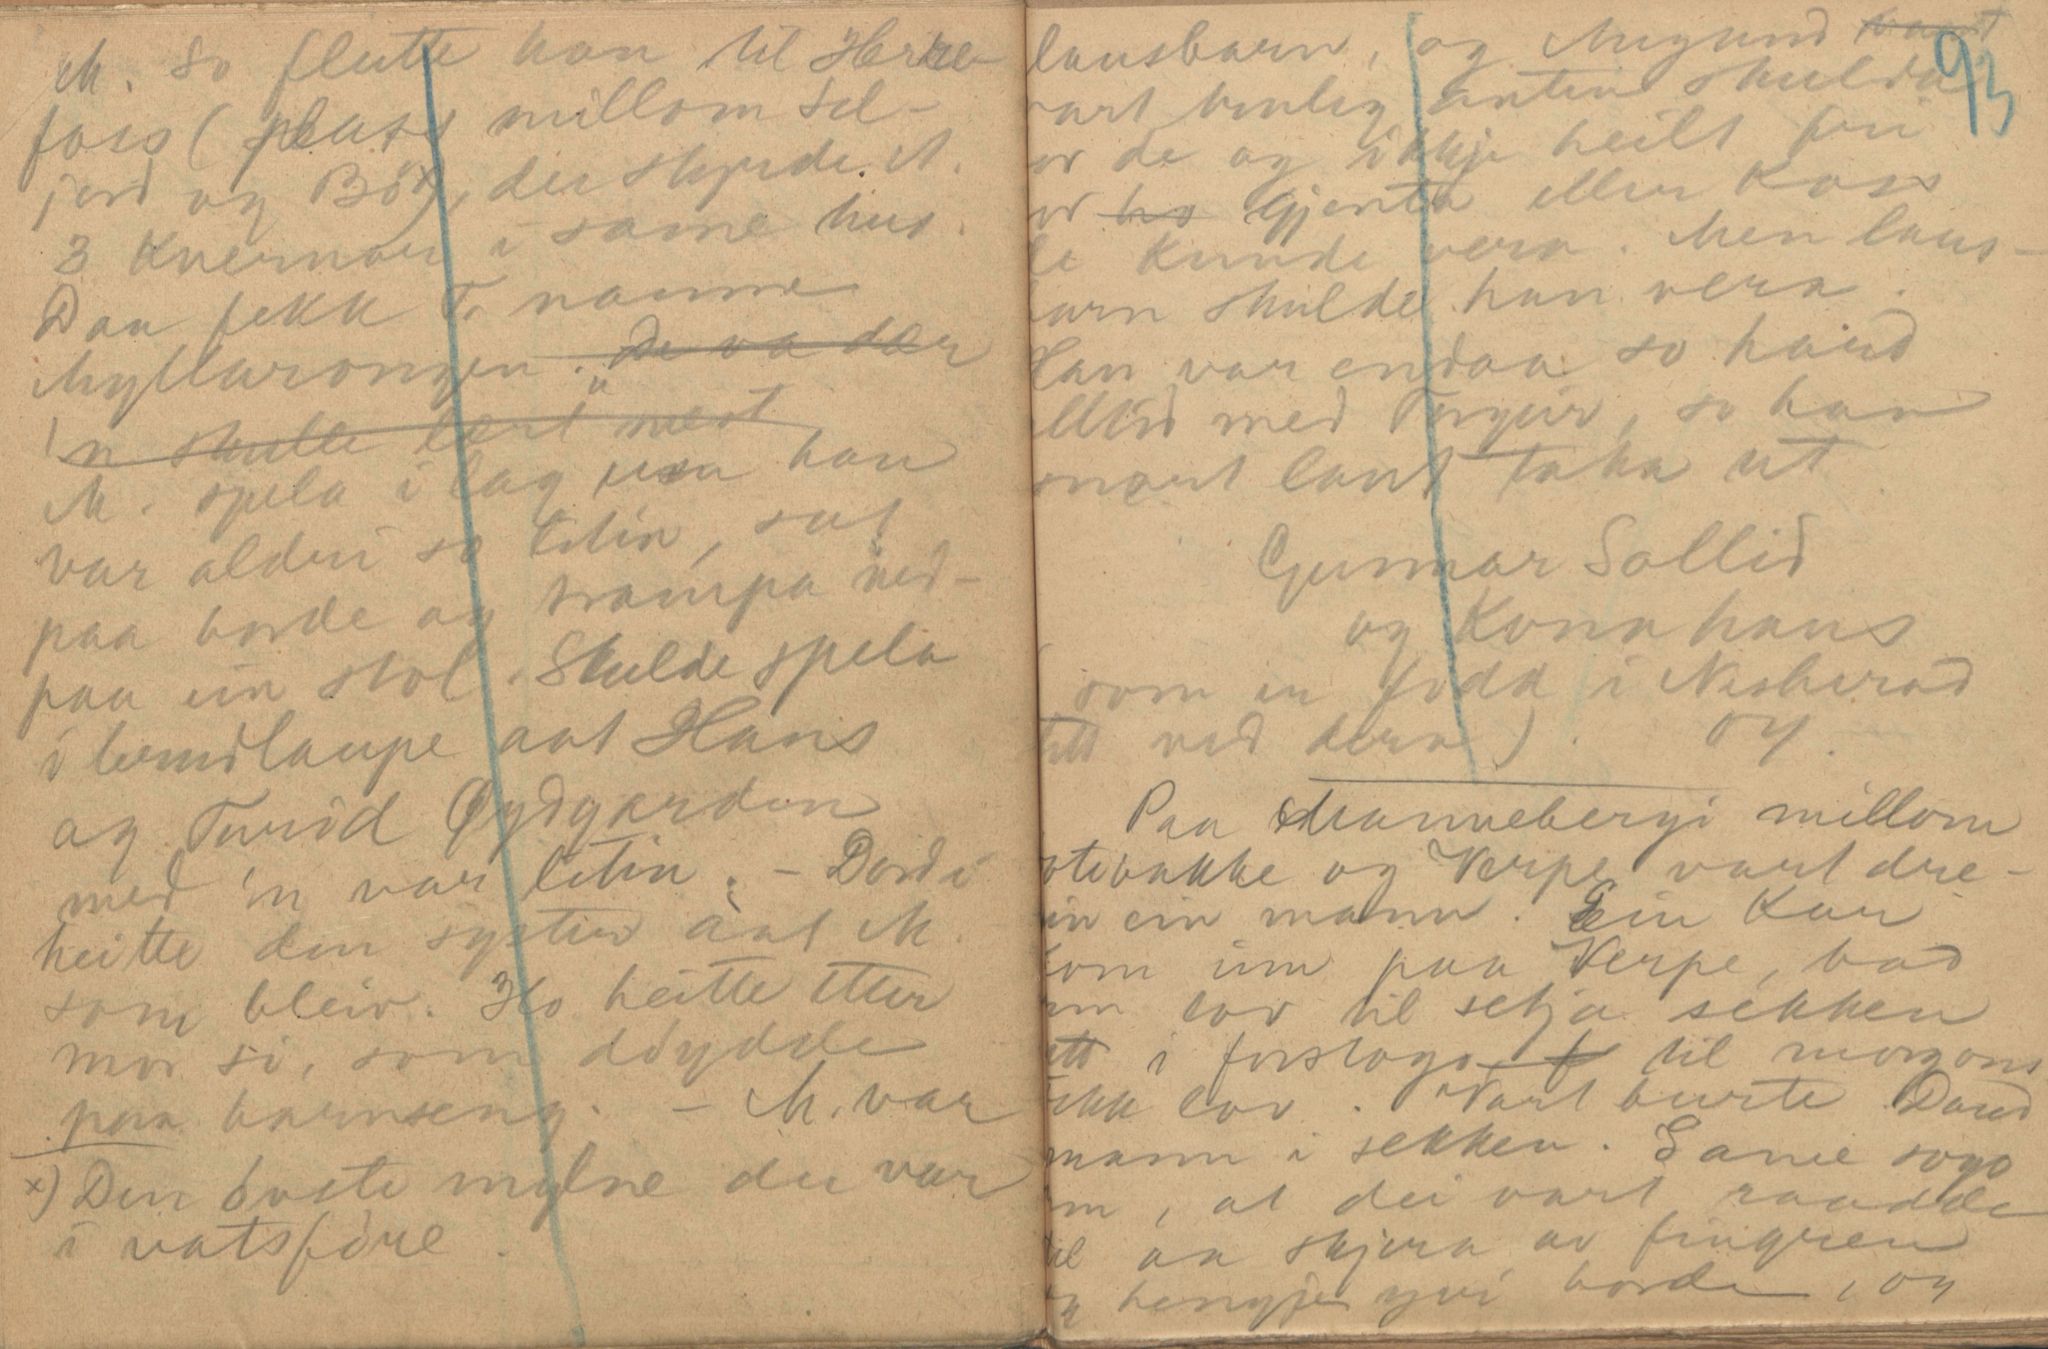 M. So flutte han til Herre-
foss (plass millom Sel-
jord og Bö x), der styrde M.
3 kvernar i same hus.
Daa fekk T. namne
Myllarongen. De va der
'n skulle lært mest
M. spela i lag han
var alderi so litin, sat
paa borde og trampa ned-
paa ein stol. Skulde spela
i brudlaupe aat Hans
og Turid Øydgarden
med 'n var litin. – Dordi
heitte den syster aat M.
som bleiv. Ho heitte etter
mor si, som döydde
paa barnseng. – M. var
x) Den övste mylne der var
i vatsföre.
93
lausbarn, og Mygund vart
vart henlig anten skulda
or de og ikkje heilt fri
or ho Gjenta eller Koss
de kunde vera. Men laus-
barn skulde han vera.
Han var endaa so haird
alltid med Torgeir, so han
snart laut taka ut
Gunnar Sollid
og Kona hans
som er fødd i Nesherad
tett ved dera). Oy.
Paa Mannebergi millom
otebakke og Verpe vart dre-
in ein mann. Ein Kar
kom inn paa Verpe, bad
um lov til setja sekken
ett i forstogo til morgons
fekk lov. Vart burte. Daud
mann i sekken. Same sogo
m, at dei vart raadde
til aa skjera av fingren
og hengje yvi borde, og